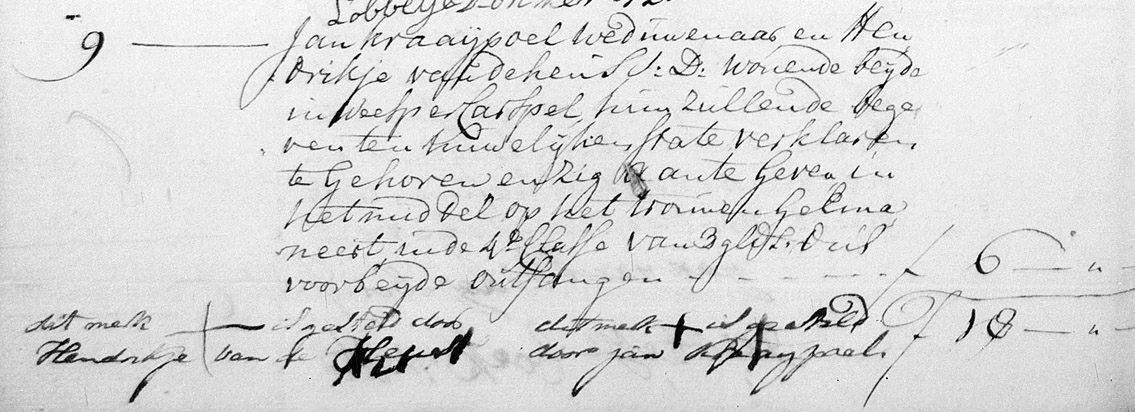 Lobbetje
9 — Jan Kraaijpoel Weduwenaar en Hen
drikje van de Hens J: D: Wonende beijde
in Weesper Carspel, hun Zullende bege
ven ten huwelijken state verklaren
te Gehoren en Zig aan te Geven in
het middel op het trouwen Gekma
neert, in de 4de Classe van 3 glds: dus
voor beijde ontfangen - - - - ƒ 6 — "
ƒ 18 — "
dit merk + is gesteld door
Hendrikje van de
dit merk + is gesteld
door Jan Kraaypoel